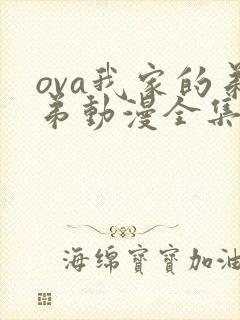 ova我家的
弟動漫全集
海绵寶寶加油